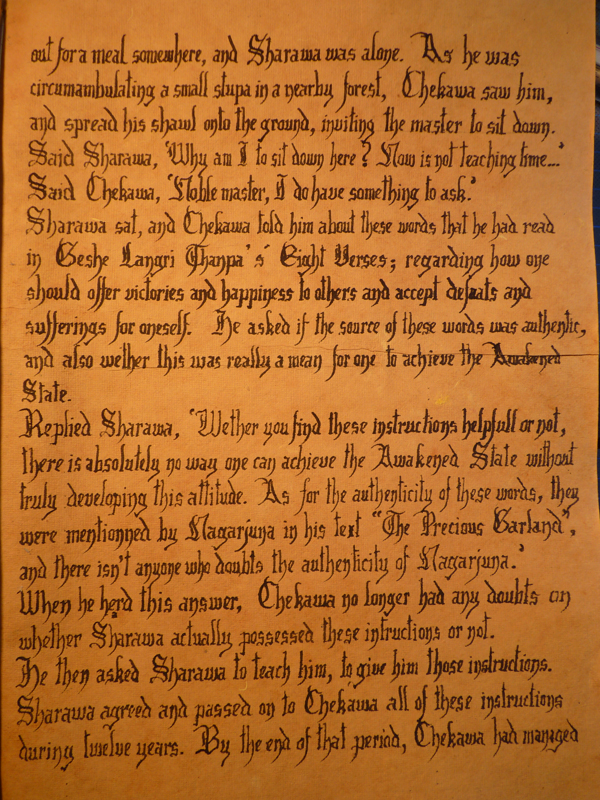 out for a meal somewhere, and Sharawa was alone. As he was
circumambulating a small stupa in a nearby forest, Chekawa saw him,
and spread his shawl onto the ground, inviting the master to sit down.
Said Sharawa, 'Why am I to sit down here? Now is not teaching time...'
Said Chekawa, 'Noble master, I do have something to ask.'
Sharawa sat, and Chekawa told him about these words that he had read
in Geshe Langri Thanpa's Eight Verses; regarding how one
should offer victories and happiness to others and accept defeats and
sufferings for oneself. He asked if the source of these words was authentic,
and also wether this was really a mean for one to achieve the Awakened
State.
Replied Sharawa, 'Wether you find these instructions helpfull or not,
there is absolutely no way one can achieve the Awakened State without
truly developing this attitude. As for the authenticity of these words, they
were mentionned by Nagarjuna in his text "The Precious Garland",
and there isn't anyone who doubts the authenticity of Nagarjuna.'
When he herd this answer, Chekawa no longer had any doubts on
whether Sharawa actually possessed these intructions or not.
He then asked Sharawa to teach him, to give him those instructions.
Sharawa agreed and passed on to Chekawa all of these instructions
during twelve years. By the end of that period, Chekawa had managed